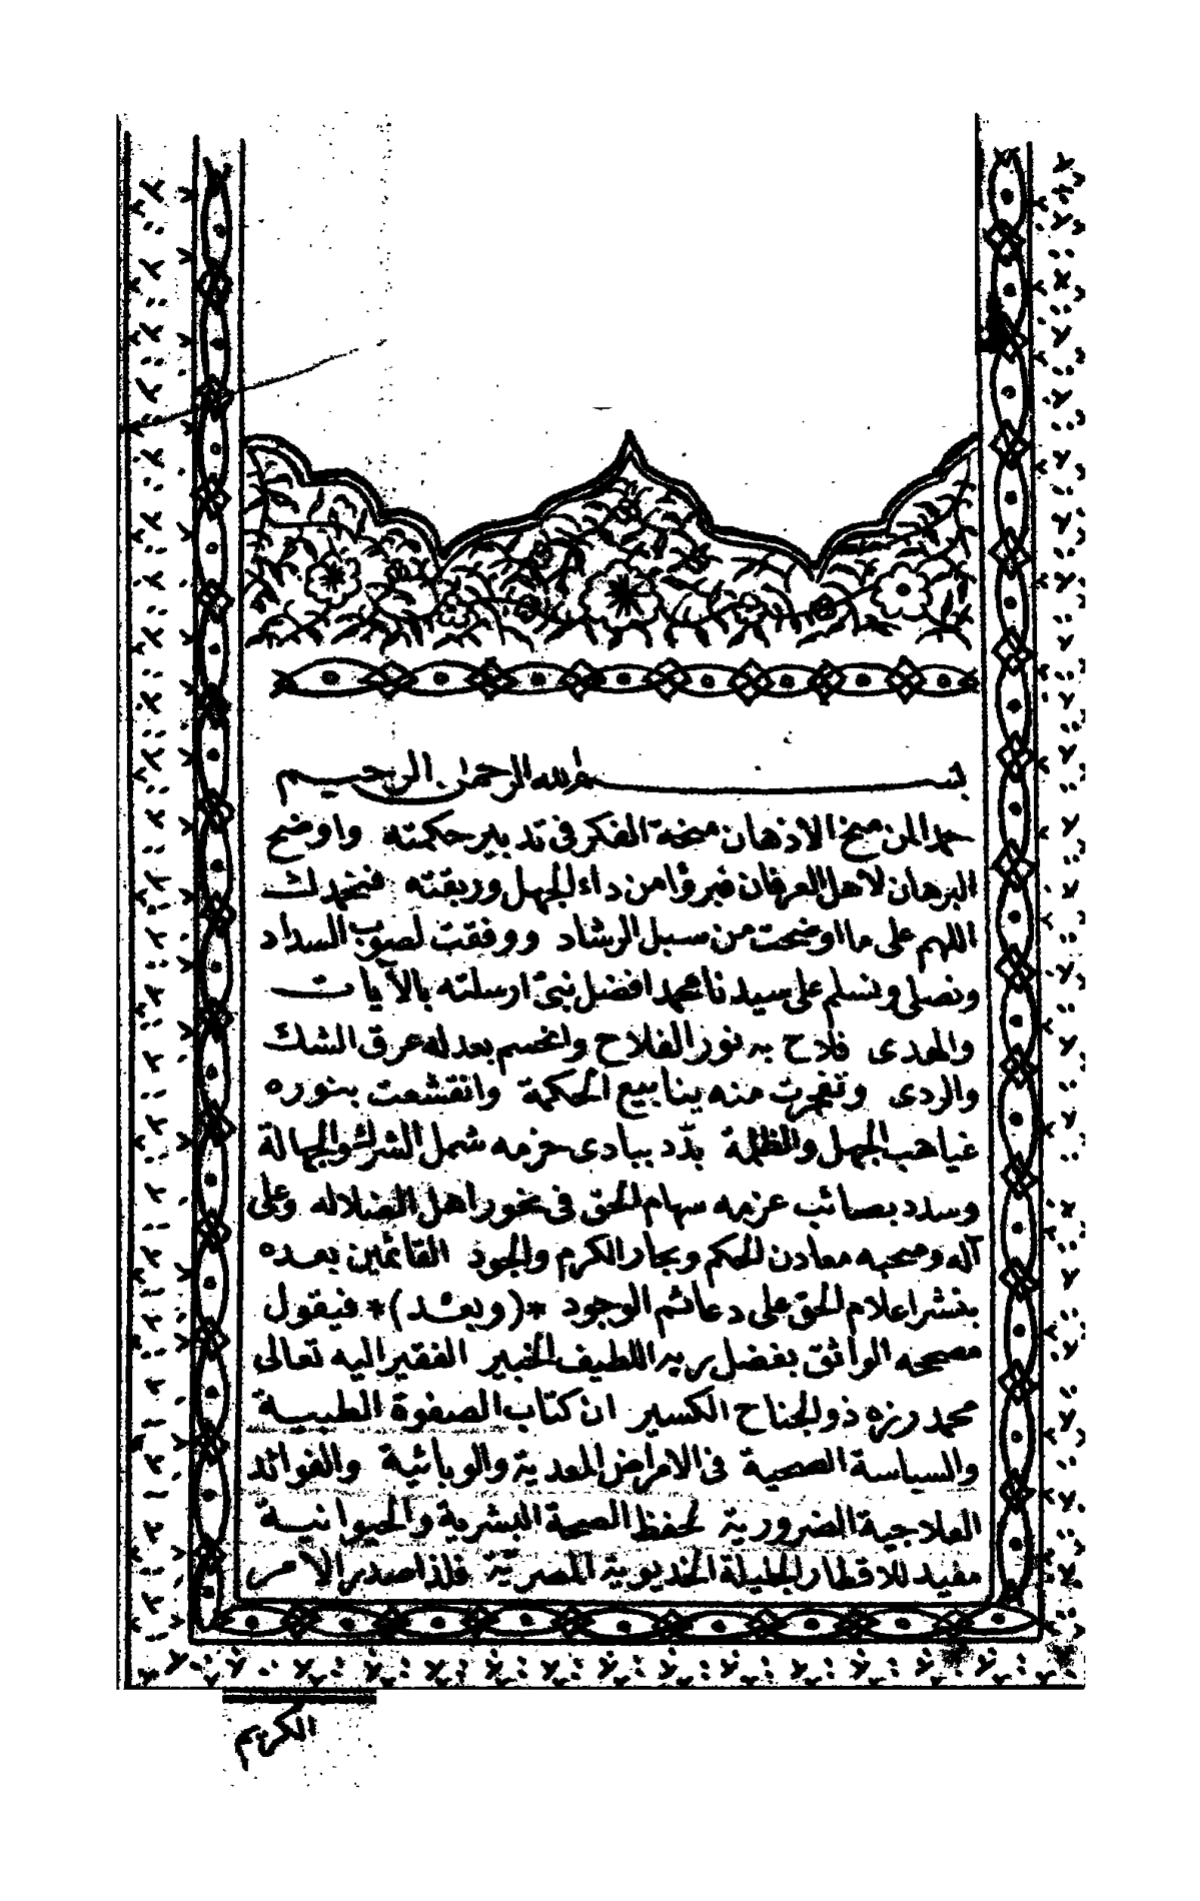 بسم الله الرحمن الرحيم
حمدا لمن منح الاذهان منحة الفكر فى تدبير حكمته واوضح
البرهان لاهل العرفان فبروًا من داء الجهل وربقته فنحمدك
اللهم على ما اوضحت من سبل الرشاد ووفقت لصوب السداد
ونصلى ونسلم على سيدنا محمد افضل نبىّ ارسلته بالآيات
والهدى فلاح به نور الفلاح وانحسم بعدله عرق الشك
والردى وتفجرت منه ينابيع الحكمة وانقشعت بنوره
غياهب الجهل والظلمة بدّد ببادى حزمه شمل الشرك والجهالة
وسدد بصائب عزمه سهام الحق فى نحور اهل الضلاله وعلى
آله وصحبه معادن الحكم وبحار الكرم والجود القائمين بعده
بنشر اعلام الحق على دعائم الوجود *(وبعد)* فيقول
مصححه الواثق بفضل ربه اللطيف الخبير الفقير اليه تعالى
محمد رزه ذو الجناح الكسير ان كتاب الصفوة الطبيـة
والسياسة الصحية فى الامراض المعدية والوبائية والفوائد
العلاجية الضرورية لحفظ الصحة البشرية والحيوانيـة
مفيد للاقطار الجليلة الخديوية المصرية فلذا صدر الامر
الكريم